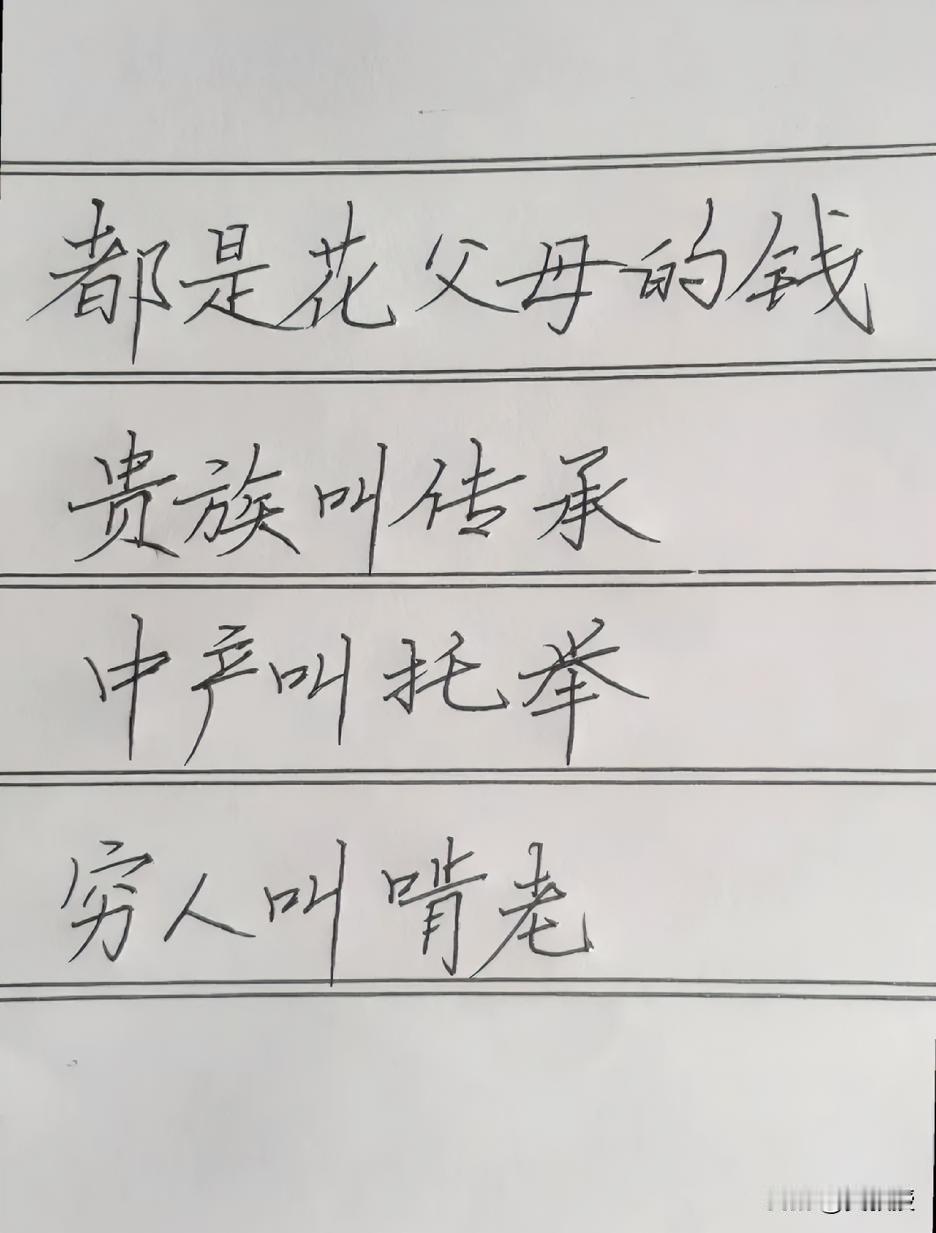 都是花父母的钱
贵族叫传承
中产叫托举
穷人叫啃老